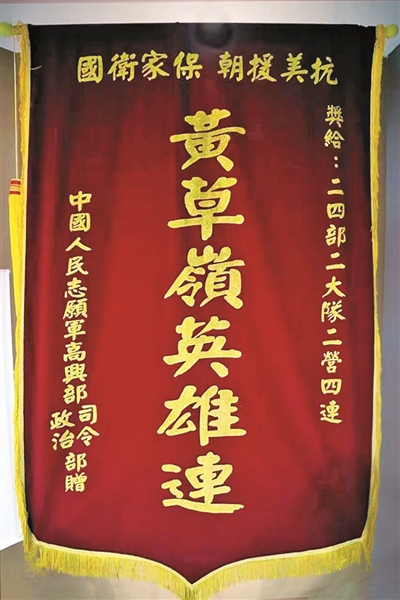 抗美援朝 保家衛國
獎給：二四部二大隊二營四連
黃草嶺英雄連
中國人民志願軍高興部司令部
政治部贈